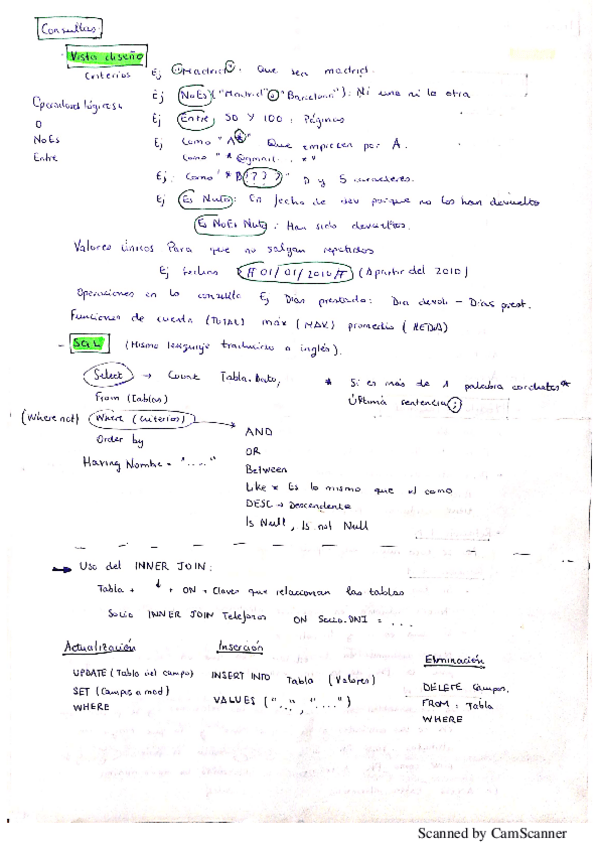 Consultas
- Vista diseño
Criterios Ej "Madrid": Que sea madrid.
Operadores lógicos
O
NoEs
Entre
Ej NoEs ("Madrid" o "Barcelona"): Ni una ni la otra
Ej Entre 50 Y 100: Páginas
Ej Como "A*" Que empiecen por A.
Como "*@gmail. . *"
Ej: Como "*D????" D y 5 caracteres.
Ej Es Nulo: En fecha de dev porque no los han devuelto
Es NoEs Nulo: Han sido devueltos.
Valores únicos Para que no salgan repetidos
Ej fechas >#01/01/2010# (A partir del 2010)
Operaciones en la consulta Ej Dias prestado: Dia devol - Dias prest.
Funciones de cuenta (TOTAL) máx (MAX) promedio (MEDIA)
- SQL (Mismo lenguaje traducirlo a inglés).
Select → Count Tabla.Dato,
* Si es más de 1 palabra corchetes*
Última sentencia ;
From (Tablas)
(Where not) Where (criterios) →
Order by
Having Nombre = "...."
AND
OR
Between
Like * Es lo mismo que el como
DESC → Descendente
Is Null, Is not Null
→ Uso del INNER JOIN:
Tabla + ↓ + ON + Claves que relacionan las tablas
Socio INNER JOIN Telefonos ON Socio.DNI = ...
Actualización
UPDATE (Tabla del campo)
SET (Campos a mod)
WHERE
Inserción
INSERT INTO Tabla (Valores)
VALUES ("...", "....")
Eliminación
DELETE Campos.
FROM: Tabla
WHERE
Scanned by CamScanner